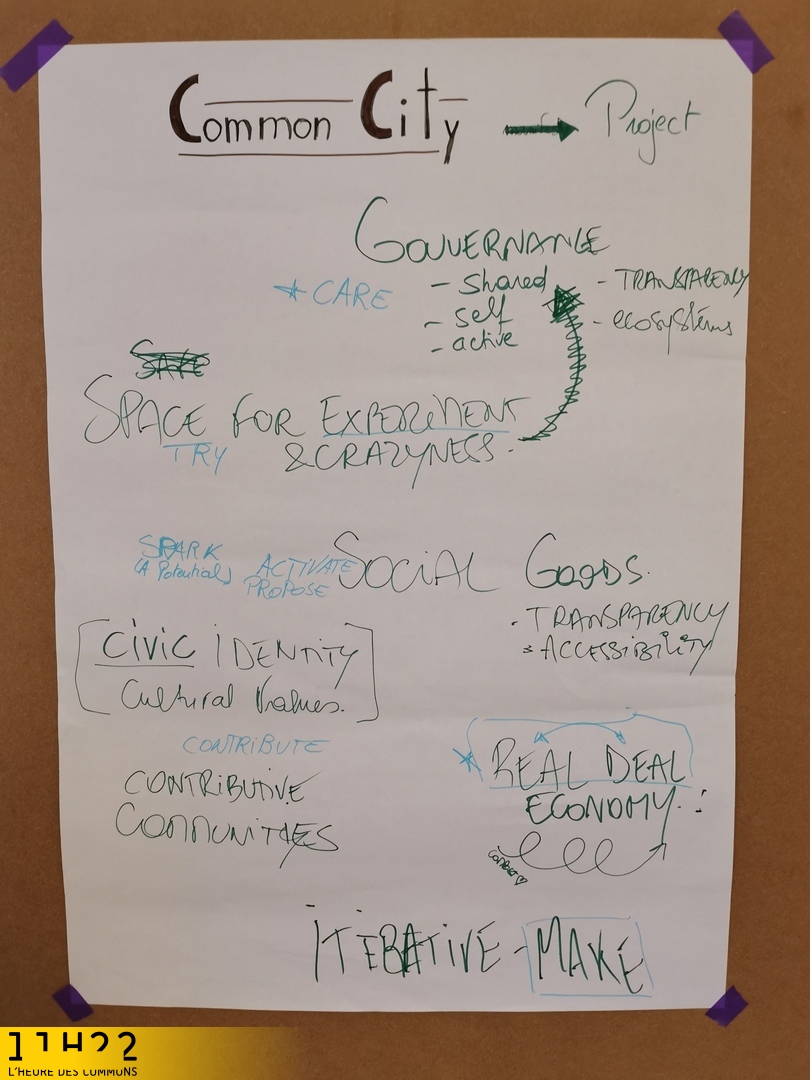 Common City → Project
GOUVERNANCE
- shared
- self
- active
- TRANSPARENCY
- ecosystems
* CARE
SPACE FOR EXPERIMENT
& CRAZYNESS.
TRY
SPARK
(A Potential)
ACTIVATE
PROPOSE
SOCIAL GOODS.
- TRANSPARENCY
- ACCESSIBILITY
[CIVIC IDENTITY
Cultural Values.]
CONTRIBUTE
CONTRIBUTIVE
COMMUNITIES
* REAL DEAL
ECONOMY. :
ITERATIVE - MAKE
11H22
L'HEURE DES COMMUNS